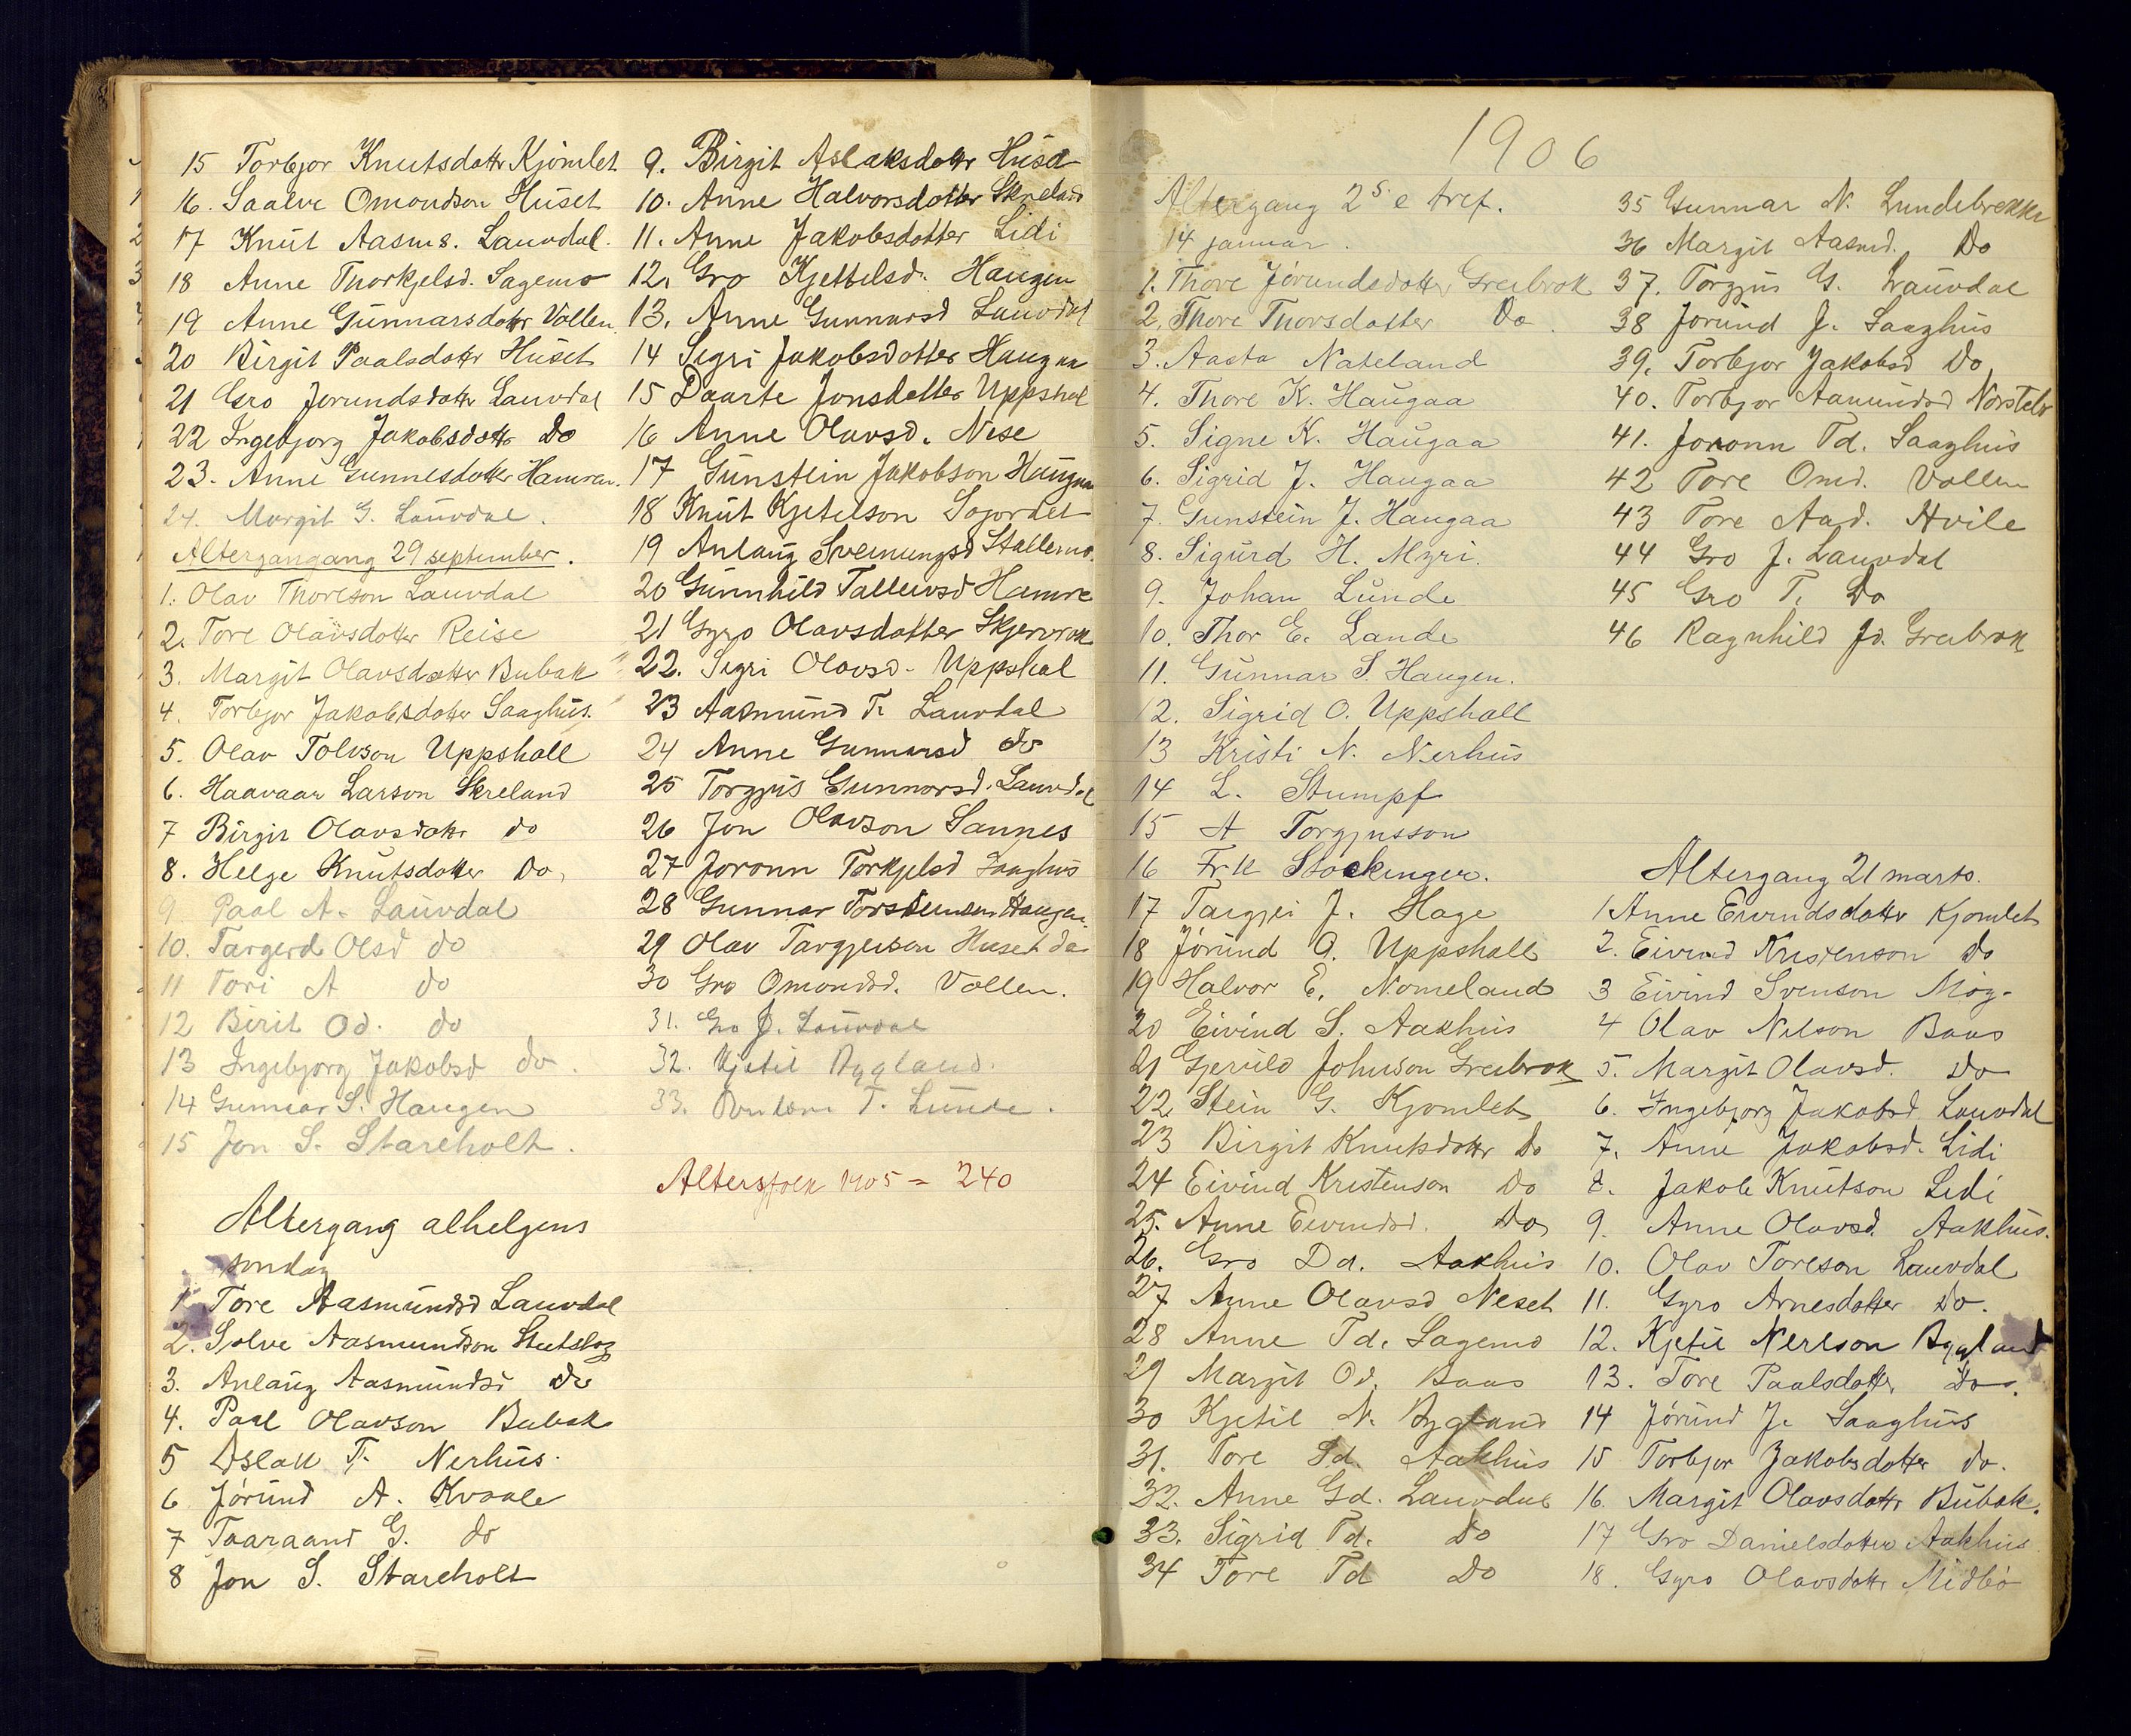 15 Torbjor Knutsdottr Kjömlet
16. Saalve Omondson Huset
17 Knut Aasms. Lauvdal.
18 Anne Thorkjelsd. Sagemo
19 Anne Gunnarsdottr Vollen
20 Birgit Paalsdottr Huset
21 Gro Jorundsdottr Lauvdal
22 Ingebjorg Jakobsdottr Do
23. Anne Gunnesdotter
24. Margit G. Lauvdal.
Altergangang 29 september.
1. Olav Thorleson Lauvdal
2. Tore Olavsdotter Reise
3. Margit Olavsdotter Bubak
4. Torbjor Jakobsdotter Saaghus.
5. Olav Tolvson Uppshall
6. Haavaar Larson Skreland
7 Birgit Olavsdottr do
8. Helge Knutsdotter Do,
9. Paal A. Lauvdal
10. Targerd Olsd do
11 Tori A do
12 Birit Od. do
13 Ingebjorg Jakobsd do.
14 Gunnar S. Haugen
15 Jon S. Stareholt.
Altergang alhelgens
søndag
1. Tore Aasmundsd Lauvdal
2. Solve Aasmundson
3. Anlaug Aasmundsd do
4. Paal Olavson Bubak
5 Aslak T. Nerhus.
6 Jörund A. Kvaale
7 Taaraand G. do
8 Jon S. Stareholt
9. Birgit Aslaksdottr
10. Anne Halvorsdotter Skreland
11. Anne Jakobsdotter Lidi
12, Gro Kjettelsd. Haugen
13, Anne Gunnarsd Lauvdal
14 Sigri Jakobsdotter Haugaa
15 Daarte Jonsdotter Uppshal
16 Anne Olavsd. Nese
17 Gunstein Jakobson Haugaa
18 Knut Kjetelson
19 Anlaug Sveinungsd Stallemo.
20 Gunnhild Tallevsd Hamre
21 Gyro Olavsdotter
22. Sigri Olavsd. Uppshal
23 Aasmund T. Lauvdal
24 Anne Gunnarsd do
25 Torgjus Gunnarsd. Lauvdal
26 Jon Olavson Sannes
27 Joronn Torkjelsd Saaghus
28 Gunnar Torsteinson Haugen
29 Olav Targjerson Huset
30 Gro Omondsd. Vollen.
31. Gro J. Lauvdal
32. Kjetil Bygland.
33. T. Lunde.
Altersfolk 1905 = 240
1906
Altergang 2s. e tref.
14 januar.
1. Thore Jörundsdotter Greibrok
2. Thore Thorsdotter Do.
3. Aasta Nateland
4. Thore K. Haugaa
5. Signe K. Haugaa
6. Sigrid J. Haugaa
7. Gunstein J. Haugaa
8. Sigurd H. Myri.
9. Johan Lunde
10. Thor E. Lande
11. Gunnar S. Haugen.
12. Sigrid O. Uppshall
13 Kristi N. Nerhus
14 L. Stumpf
15 A Torgjusson
16 Frk Stockinger.
17 Targjei J. Hage
18 Jörund O. Uppshall
19 Halvor E. Nomeland
20 Eivind S. Aakhus
21 Gjeruld Johnson Greibrok
22 Stein G. Kjomlet
23 Birgit Knutsdottr Do
24 Eivind Kristenson Do
25. Anne Eivindsd. Do
26. Gro Dd. Aakhus
27 Anne Olavsd Neset
28 Anne Td. Sagemo
29 Margit Od. Baas
30 Kjetil N. Bygland
31. Tore Sd. Aakhus
32. Anne Gd. Lauvdal
33. Sigrid Td. Do
34 Tore Td Do
35 Gunnar N. Lundebrekke
36 Margit Aasmd. Do
37. Torgjus G. Lauvdal
38 Jorund J. Saaghus
39. Torbjor Jakobsd Do
40. Torbjor Aamundsd
41. Joronn Td. Saaghus
42 Tore Omd. Vollen
43 Tore Aad. Hvile
44 Gro J. Lauvdal
45 Gro T. Do
46 Ragnhild Jd. Greibrok
Altergang 21 marts.
1 Anne Eivindsdottr Kjomlet
2. Eivind Kristenson Do
3 Eivind Svenson Moy-
4 Olav Nilson Baas
5. Margit Olavsd. Do
6. Ingebjorg Jakobsd Lauvdal
7. Anne Jakobsd. Lidi
8. Jakob Knutson Lidi
9. Anne Olavsd. Aakhus.
10. Olav Torleson Lauvdal
11. Gyro Arnesdotter Do.
12. Kjetil Nerison Bygland
13. Tore Paalsdotter Do.
14 Jörund J. Saaghus
15 Torbjor Jakobsdotter do.
16. Margit Olavsdottr Bubak.
17 Gro Danielsdotter Aakhus
18. Gyro Olavsdottr Midbö